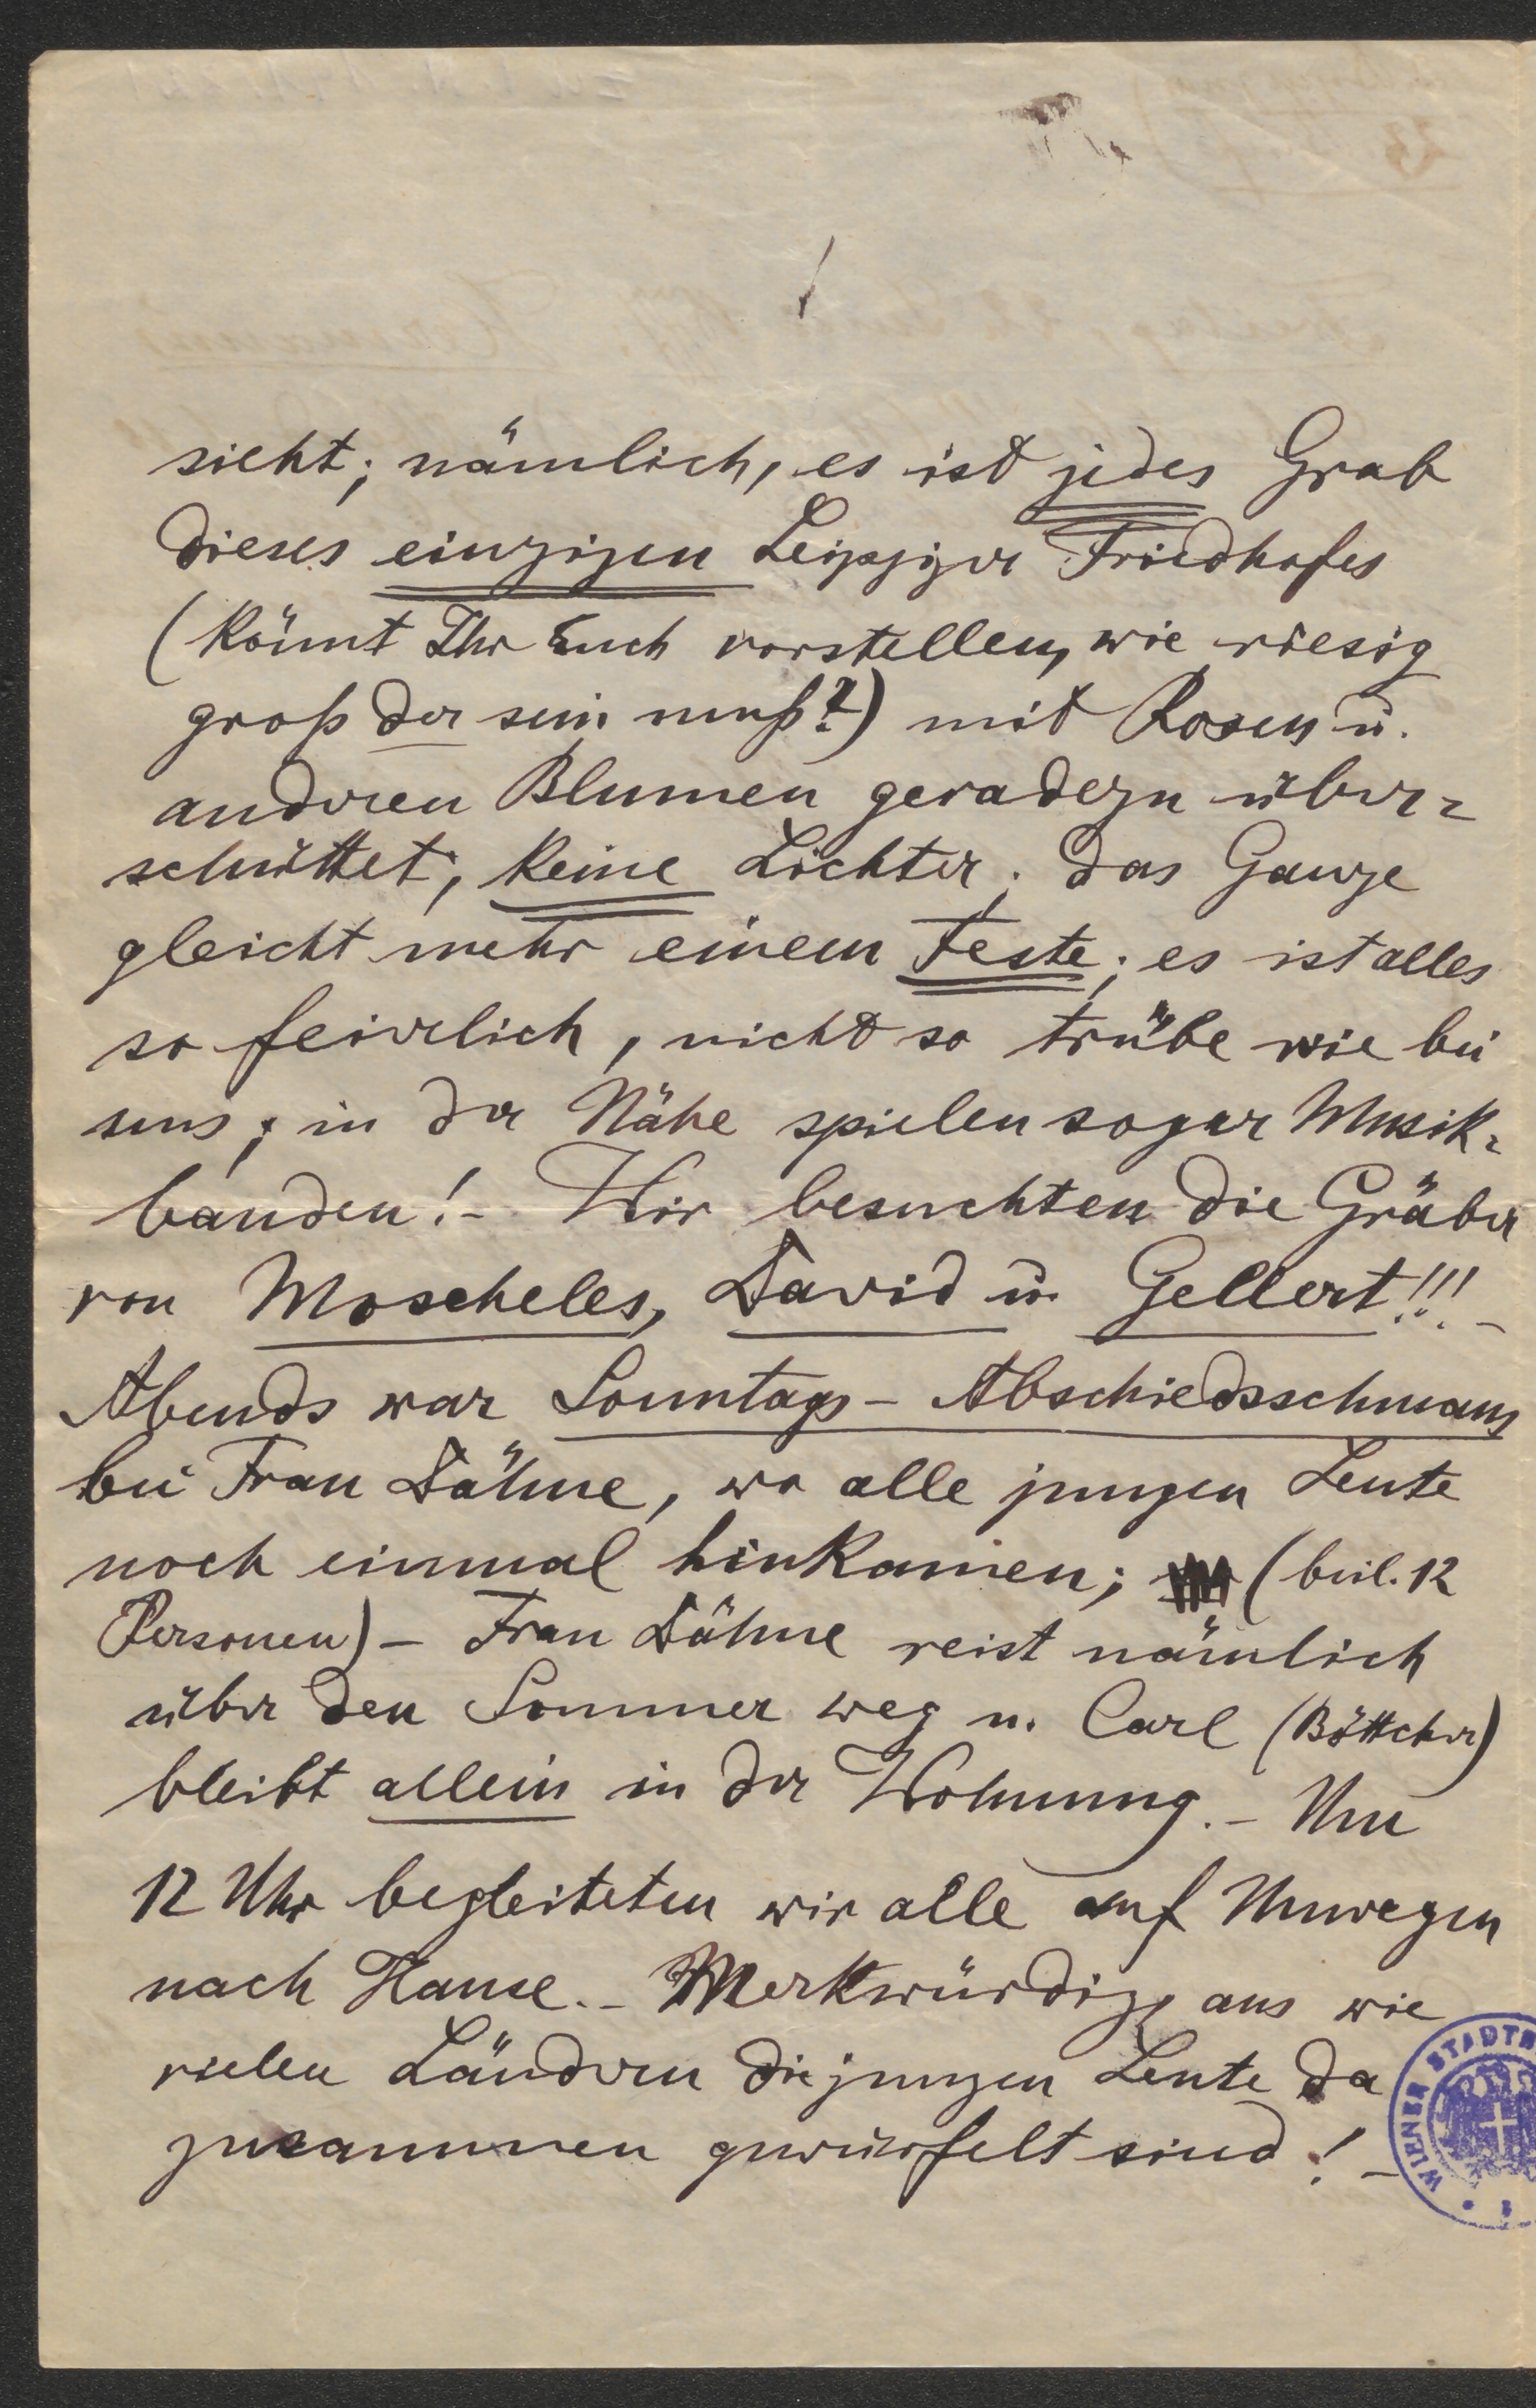 sieht; nämlich, es ist jedes Grab
dieses einzigen Leipziger Friedhofes
(könnt Ihr Euch vorstellen, wie riesig
groß der sein muß?) mit Rosen u.
anderen Blumen geradezu über=
schüttet, keine Lichter; das Ganze
gleicht mehr einem Feste; es ist alles
so feierlich, nicht so trübe wie bei
uns; in der Nähe spielen sogar Musik=
banden! - Wir besuchten die Gräber
von Moscheles, David u. Gellert!!! -
Abends war Sonntags - Abschiedsschmaus
bei Frau Dähne, wo alle jungen Leute
noch einmal hinkamen; (beil. 12
Personen) - Frau Dähne reist nämlich
über den Sommer weg u. Carl (Böttcher)
bleibt allein in der Wohnung. - Um
12 Uhr begleiteten wir alle auf Umwegen
nach Hause. - Merkwürdig, aus wie
vielen Ländern die jungen Leute da
zusammen gewürfelt sind! -
WIENER STADT